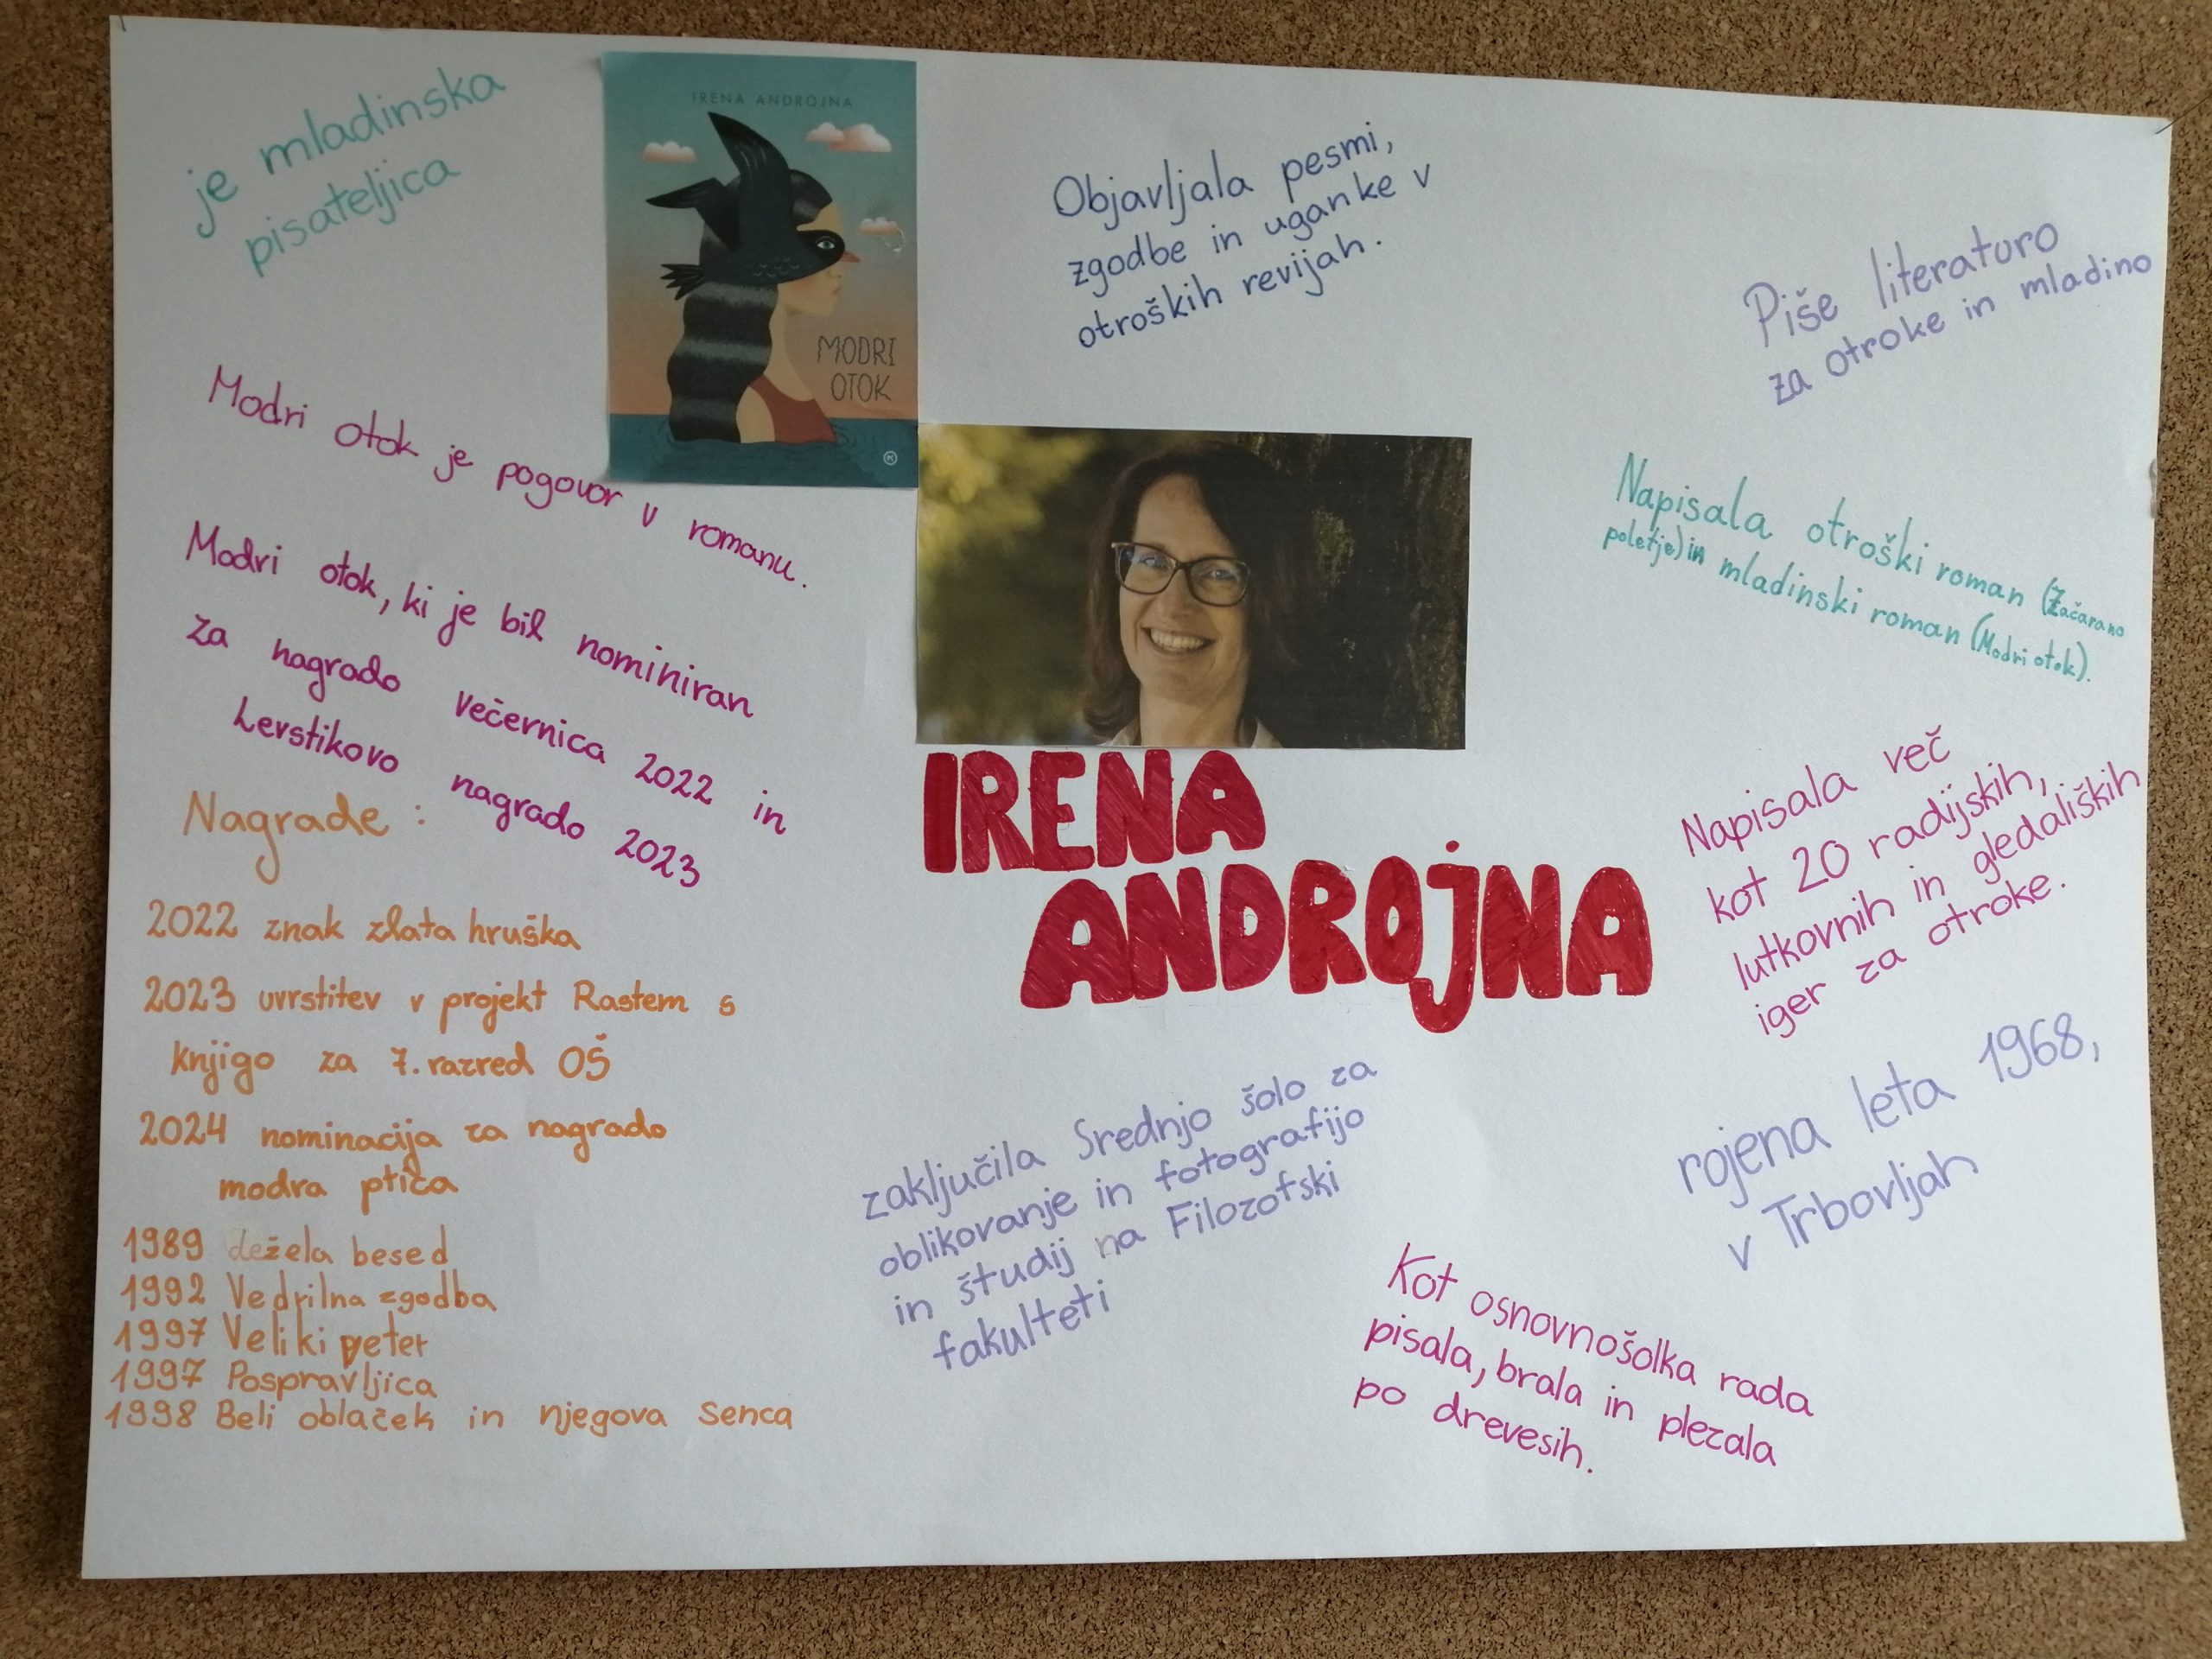 je mladinska
pisateljica
IRENA ANDROJNA
MODRI
OTOK
Objavljala pesmi,
zgodbe in uganke v
otroških revijah.
Piše literaturo
za otroke in mladino
Modri otok je pogovor v romanu.
Modri otok, ki je bil nominiran
za nagrado večernica 2022 in
Levstikovo nagrado 2023
Napisala otroški roman (Začarano
poletje) in mladinski roman (Modri otok).
IRENA
ANDROJNA
Napisala več
kot 20 radijskih,
lutkovnih in gledaliških
iger za otroke.
Nagrade:
2022 znak zlata hruška
2023 uvrstitev v projekt Rastem s
knjigo za 7. razred OŠ
2024 nominacija za nagrado
modra ptica
1989 dežela besed
1992 Vedrilna zgodba
1997 Veliki veter
1997 Pospravljica
1998 Beli oblaček in njegova senca
zaključila Srednjo šolo za
oblikovanje in fotografijo
in študij na Filozofski
fakulteti
rojena leta 1968,
v Trbovljah
Kot osnovnošolka rada
pisala, brala in plezala
po drevesih.